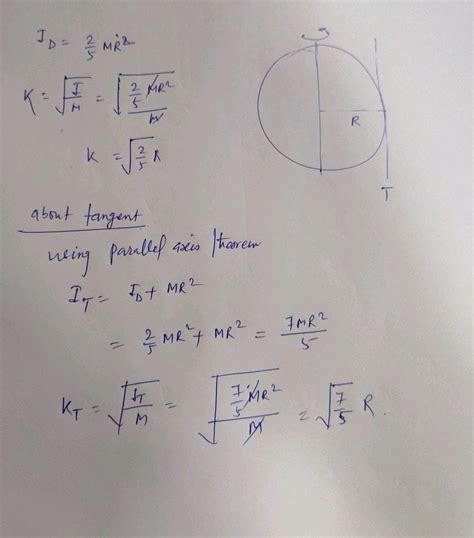 I_D = 2/5 MR²
K = √(I/M) = √((2/5 MR²)/M)
K = √(2/5) R
R
T
about tangent
using parallel axis theorem
I_T = I_D + MR²
= 2/5 MR² + MR² = 7MR²/5
K_T = √(I_T/M) = √((7/5 MR²)/M) = √(7/5) R.